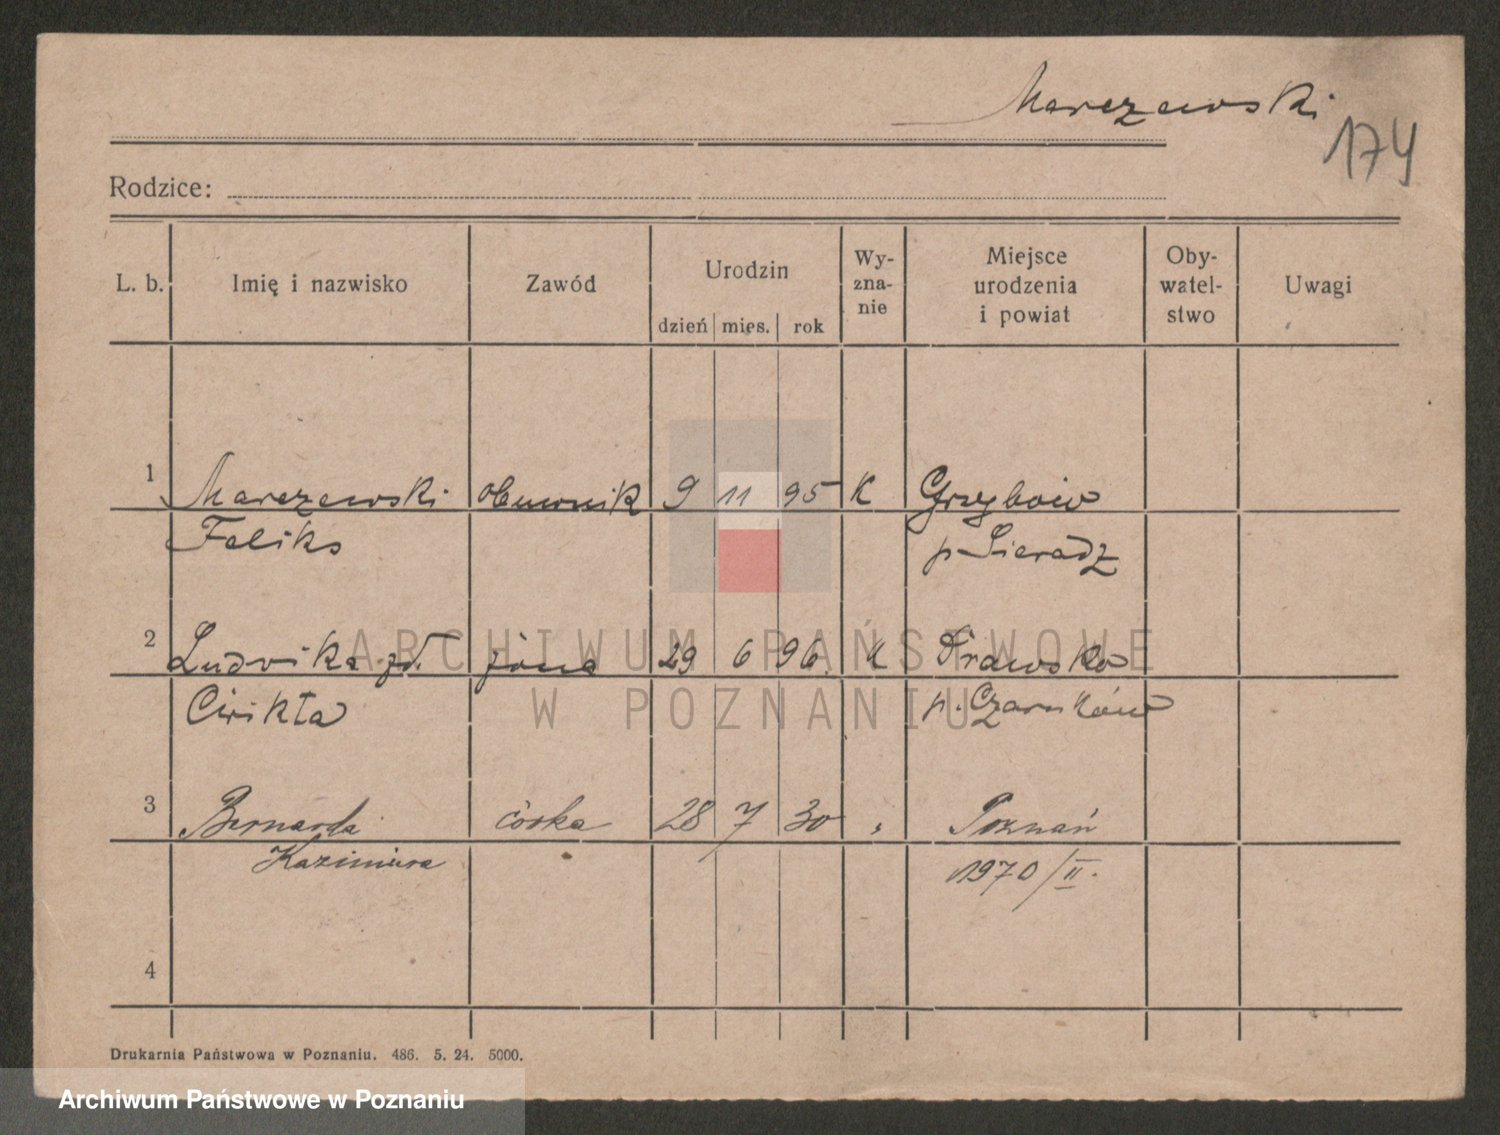 Marczewski
174
Rodzice:
L. b. Imię i nazwisko Zawód Urodzin dzień mies. rok Wy-zna-nie Miejsce urodzenia i powiat Oby-watel-stwo Uwagi
1 Marczewski obuwnik 9 11 95 K Grzybów
Feliks p. Sieradz
2 Ludwika zd. żona 29 6 96. K Drawsko
Ćwikła p. Czarnków
3 Bernarda córka 28 7 30 " Poznań
Kazimiera 1970/II.
4
Drukarnia Państwowa w Poznaniu. 486. 5. 24. 5000.
ARCHIWUM PAŃSTWOWE
W POZNANIU
Archiwum Państwowe w Poznaniu